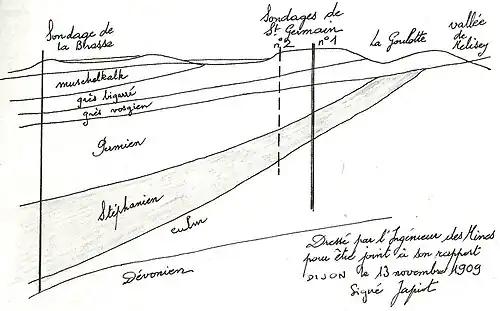 Sondage de
la Brosse
Sondages de
St Germain
n°2
n°1
La Goulotte
vallée
de
Melisey
muschelkalk
grès bigarré
grès vosgien
Permien
Stéphanien
culm
Dévonien
Dressé par l'Ingénieur des Mines
pour être joint à son rapport
DIJON le 13 novembre 1909
Signé Japiot